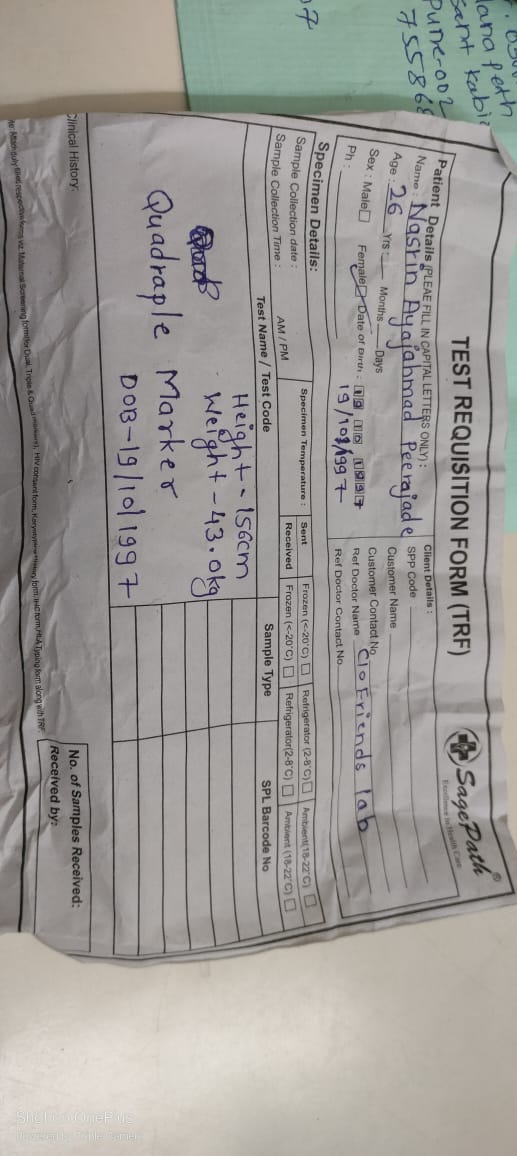 : 002
lana peth
sant Kabi
Pune-002
75586
07
TEST REQUISITION FORM (TRF)
SagePath®
Excellence In Health Care
Patient Details (PLEAE FILL IN CAPITAL LETTERS ONLY) :
Name : Nasrin Ayajahmad Peerajade
Age : 26 Yrs : Months Days
Sex : Male Female Date of Birth : 19 10 1997
19/10/1997
Ph :
Client Details :
SPP Code
Customer Name
Customer Contact No.
Ref Doctor Name C/o Friends lab
Ref Doctor Contact No.
Specimen Details:
Sample Collection date :
Sample Collection Time : AM / PM
Specimen Temperature : Sent Frozen (<-20°C) Refrigerator (2-8°C) Ambient(18-22°C)
Received Frozen (<-20°C) Refrigerator(2-8°C) Ambient (18-22°C)
Test Name / Test Code Sample Type SPL Barcode No
Height - 156cm
Weight - 43.0kg
Quadraple Marker
DOB-19/10/1997
Clinical History:
No. of Samples Received:
Received by:
Shot on OnePlus